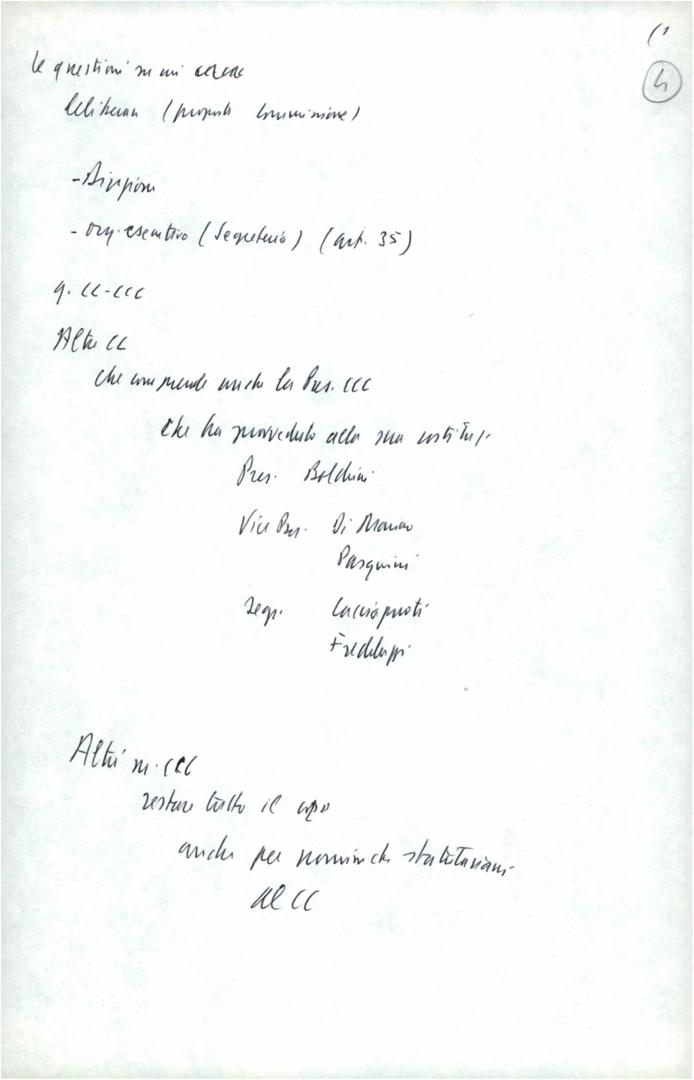 4
le questioni su cui
deliberare (proposte commissione)
- Direzione
- org. esecutivo (Segreteria) (art. 35)
q. CC-CCC
Altre CC
che comprende anche la Pres. CCC
che ha provveduto alla sua costituz.
Pres. Boldrini
Vice Pres. Di Marino
Pasquini
Segr. Cacciapuoti
Fredduzzi
Altri m. CCC
restare tutto il
anche per statutariam.
al CC